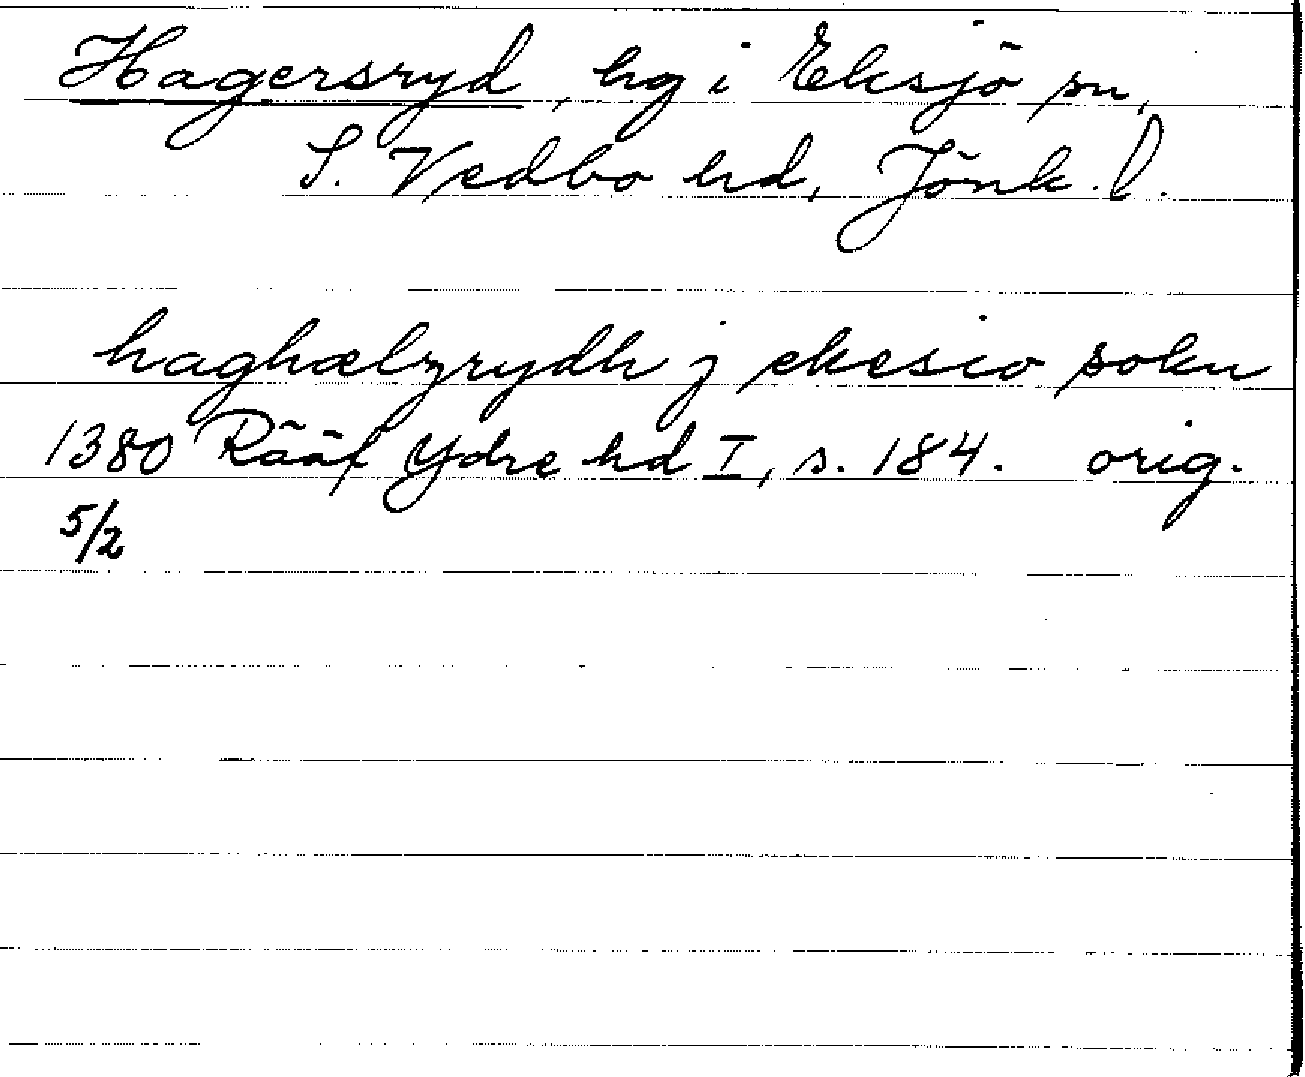 Hagersryd, hg i Eksjö sn,
S. Vedbo hd, Jönk. l.
haghælzrydh j ekesio sokn
1380 Rääf Ydre hd I, s. 184. orig.
5/2